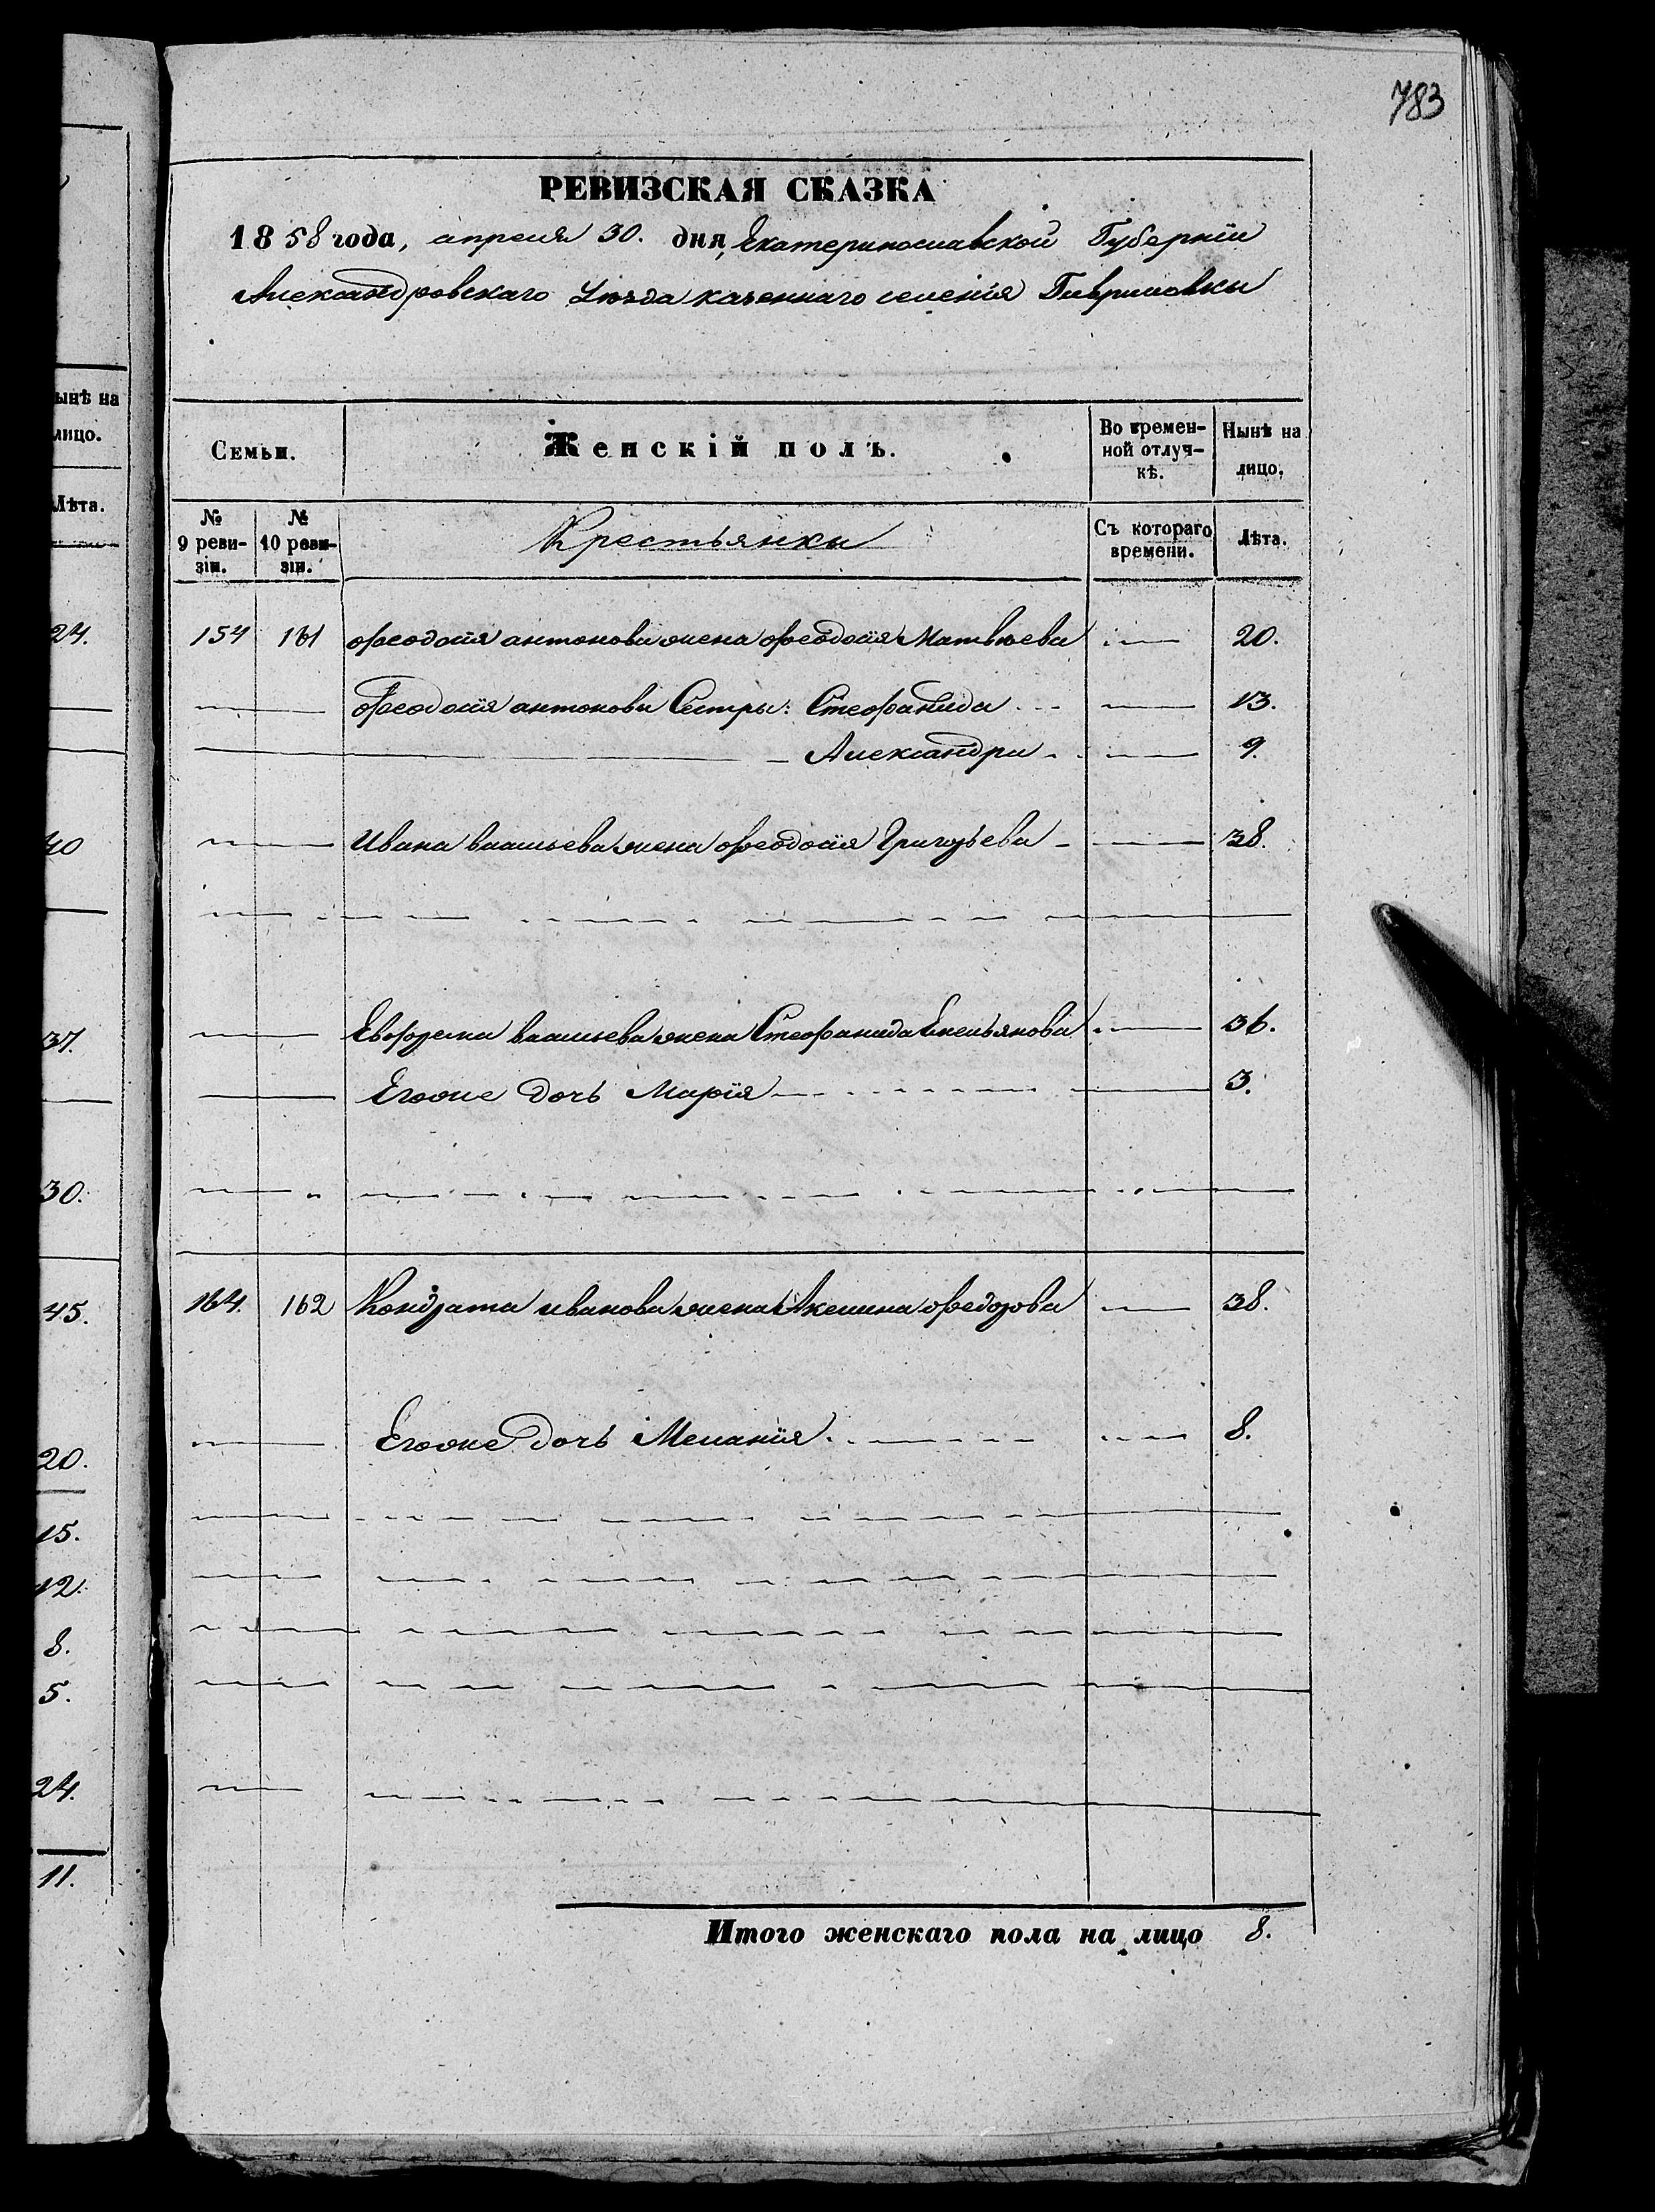 783
РЕВИЗСКАЯ СКАЗКА
1858 года, апреля 30. дня, Екатеринославской Губерніи
Александровскаго Уѣзда казеннаго селенія Гавриловки
Семьи.
Женскій полъ.
Во времен-
ной отлуч-
кѣ.
Нынѣ на
лицо.
№
9 реви-
зіи.
№
10 реви-
зіи.
Крестьянки
Съ котораго
времени.
Лѣта.
154 161 Феодосія антонова жена Феодосія Матвѣева 20.
Феодосія антонова Сестры: Стефанида 13.
Александра 9.
Ивана васильева жена Феодосія Григорьева 38.
Евфрема васильева жена Стефанида Емельянова 36.
Егоже дочь Марія 3.
164. 162 Кондрата иванова жена Акелина Федорова 38.
Егоже дочь Меланія 8.
Итого женскаго пола на лицо 8.
ынѣ на
лицо.
Лѣта.
24.
40
37.
30.
45.
20.
15.
12.
8.
5.
24.
11.